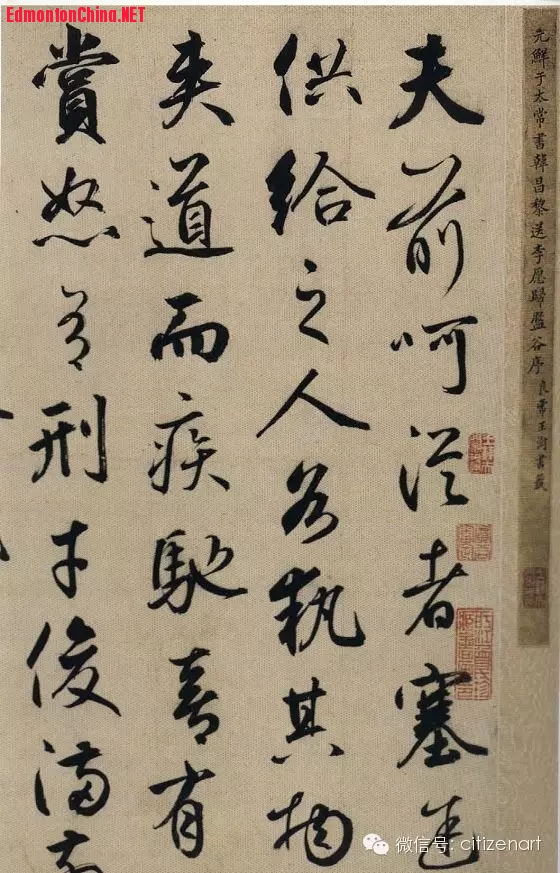 EdmontonChina.NET
元鮮于太常書韓昌黎送李愿歸盤谷序 良常王澍書籤
夫前呵從者塞途
供給之人各執其物
夾道而疾馳喜有
賞怒有刑才俊滿前
微信号: citizenart